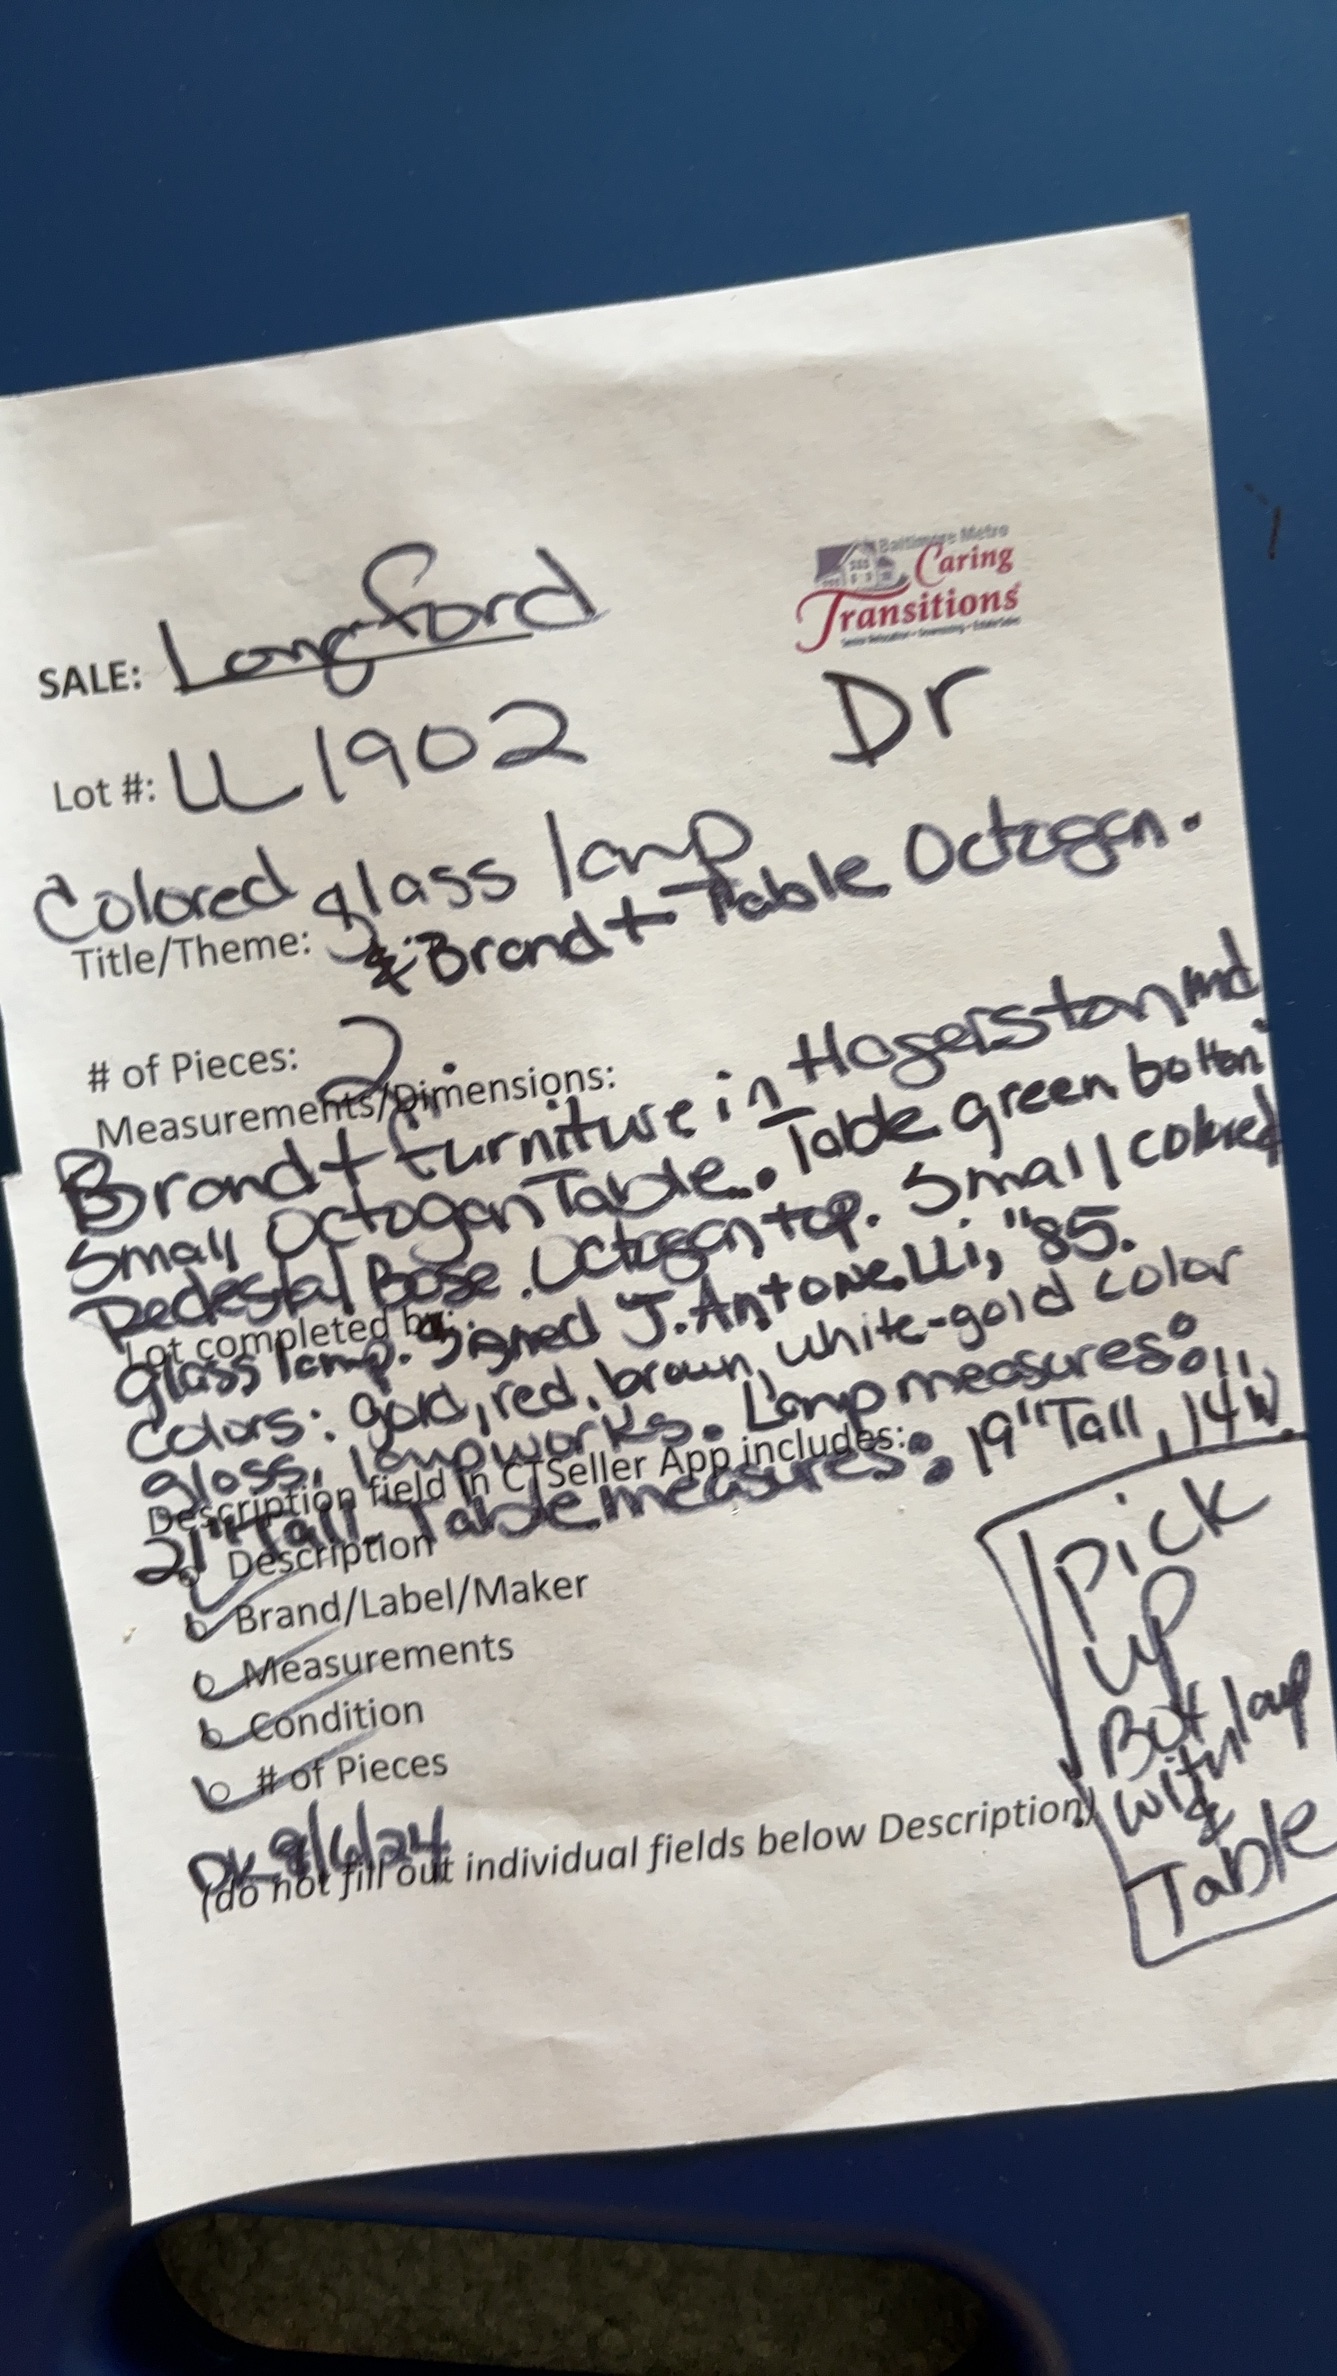 Baltimore Metro
Caring
Transitions
SALE: Longford
Dr
Lot #: LL1902
Colored glass lamp
Title/Theme: & Brandt Table Octogon.
# of Pieces: 2
Measurements/Dimensions:
Brandt furniture in Hagerston Md
Small Octogon Table. Table green bottom
Pedestal Base. Octogon top. Small colored
Lot completed by:
glass lamp. Signed J. Antonelli, "85.
Colors: gold, red, brown, white-gold color
gloss, lampworks. Lamp measures:
Description field in CTSeller App includes:
21" Tall. Table measures: 19" Tall, 14"W.
Description
Brand/Label/Maker
Measurements
Condition
# of Pieces
DK 8/6/24
(do not fill out individual fields below Description)
Pick
up
Box
with lamp
&
Table